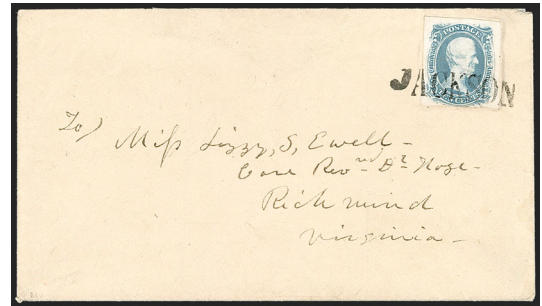 POSTAGE
JACKSON
TEN CENTS
To)
Miss Lizzy, S, Ewell –
Care Revnd Dr Hoge –
Richmind
Virginia –